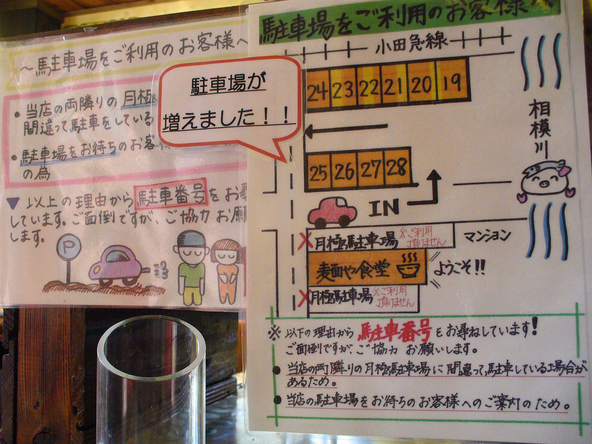 ~駐車場をご利用のお客様へ
・当店の両隣りの月極
間違って駐車をしている
・駐車場をお待ちのお客様
の為
▼以上の理由から駐車番号をお尋
しています。ご面倒ですが、ご協力お願
します。
P
駐車場が
増えました!!
駐車場をご利用のお客様へ
小田急線
24 23 22 21 20 19
25 26 27 28
相模川
IN
×月極駐車場 ×ご利用頂けません
マンション
麺面や食堂
ようこそ!!
×月極駐車場 ×ご利用頂けません
※以下の理由から駐車番号をお尋ねしています!
ご面倒ですが、ご協力お願いします。
●当店の両隣りの月極駐車場に間違って駐車している場合が
あるため。
●当店の駐車場をお待ちのお客様へのご案内のため。